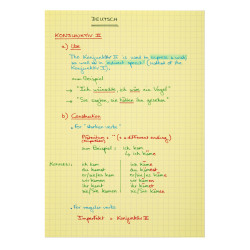 DEUTSCH
KONJUNKTIV II
a) Use
The Konjunktiv II is used to express a wish
as well as in indirect speech (instead of the
Konjunktiv I).
zum Beispiel
→ "Ich wünschte, ich wäre ein Vogel"
→ "Sie sagten, ich hätte ihn gesehen"
b) Construction
· for "starken verbs"
Präteritum + ¨ (+ a different ending)
zum Beispiel: ich kam
ich käme
KOMMEN: ich kam ich käme
du kamst du kämest
er/sie/es kam er/sie/es käme
wir kamen wir kämen
ihr kamt ihr kämet
sie/Sie kamen sie/Sie kämen
· for regular verbs
Imperfekt = Konjunktiv II